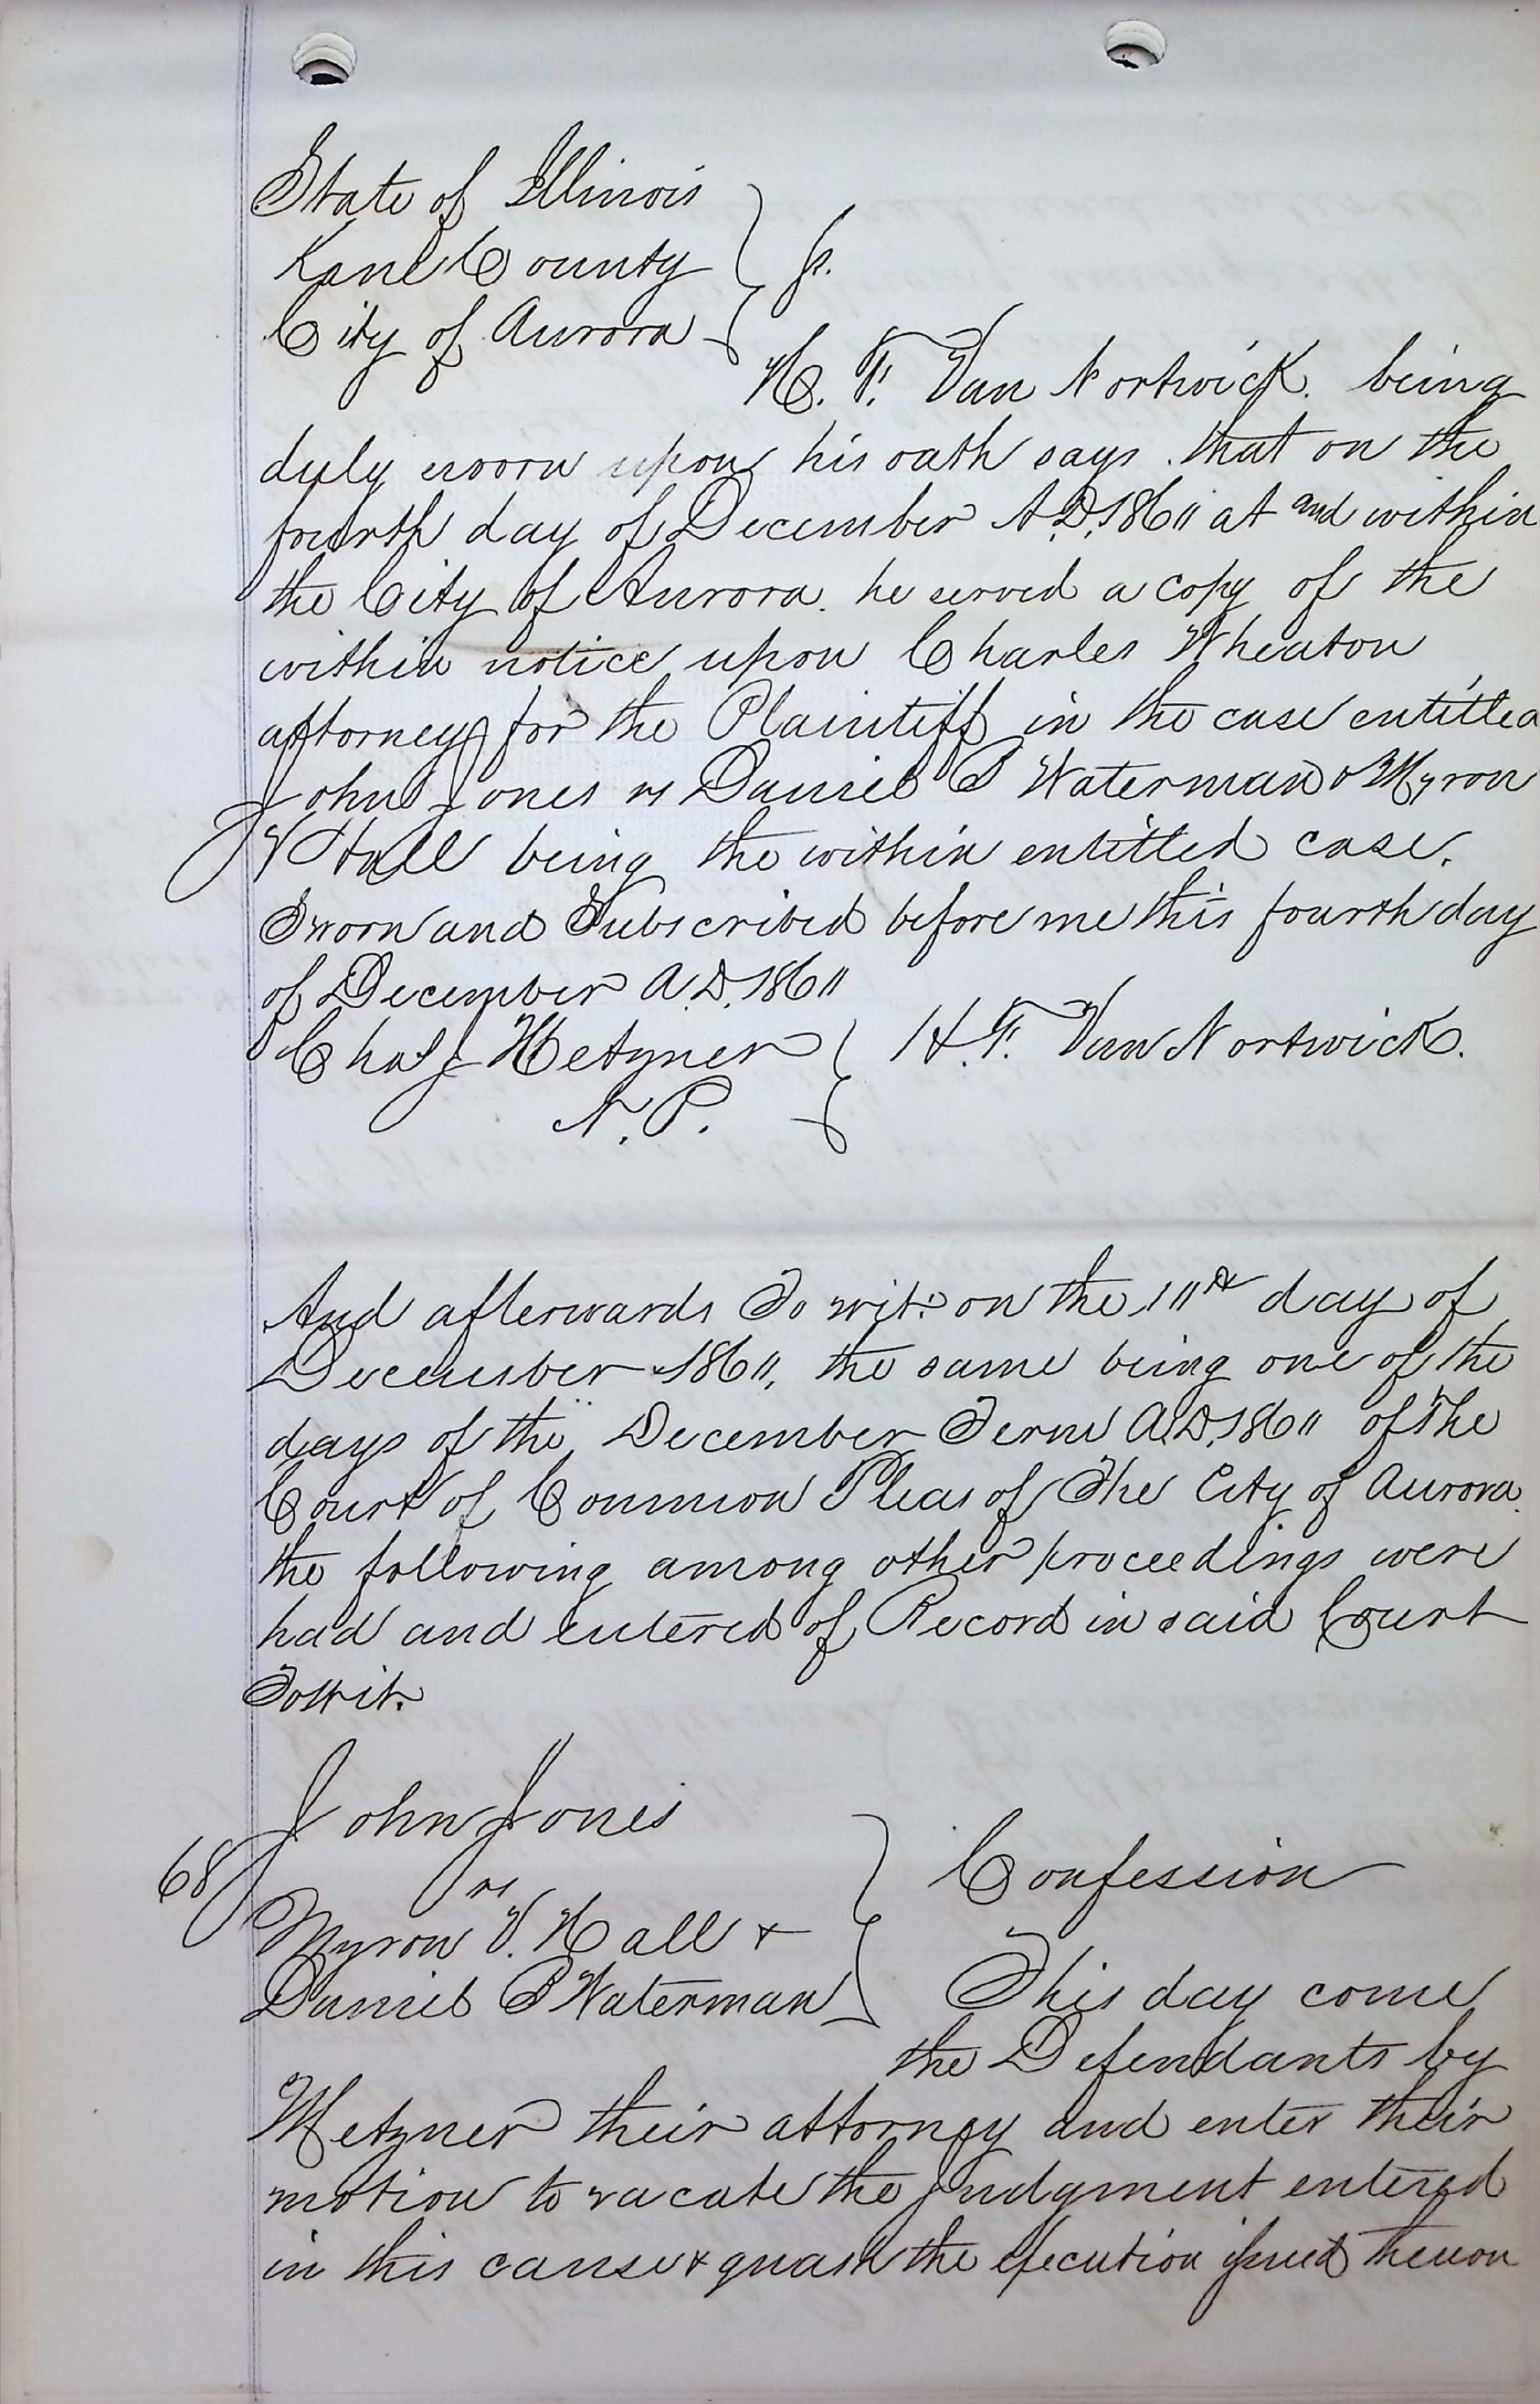 State of Illinois
Kane County } ss.
City of Aurora
H. F. Van Nortwick. being
duly sworn upon his oath says. that on the
fourth day of December A.D. 1861 at and within
the City of Aurora. he served a copy of the
within notice upon Charles Wheaton
attorney for the Plaintiff in the case entitled
John Jones vs Daniel B Waterman & Myron
V Hall being the within entitled case.
Sworn and Subscribed before me this fourth day
of December A.D. 1861
Chas J Metzner } H. F. Van Nortwick.
N. P.
And afterwards To wit: on the 11th day of
December 1861, the same being one of the
days of the December Term A.D. 1861 of the
Court of Common Pleas of The City of Aurora.
the following among other proceedings were
had and entered of Record in said Court
Towit.
John Jones
68 vs } Confession
Myron V. Hall &
Daniel B Waterman This day come
the Defendants by
Metzner their attorney and enter their
motion to vacate the judgment entered
in this cause & quash the execution issued thereon